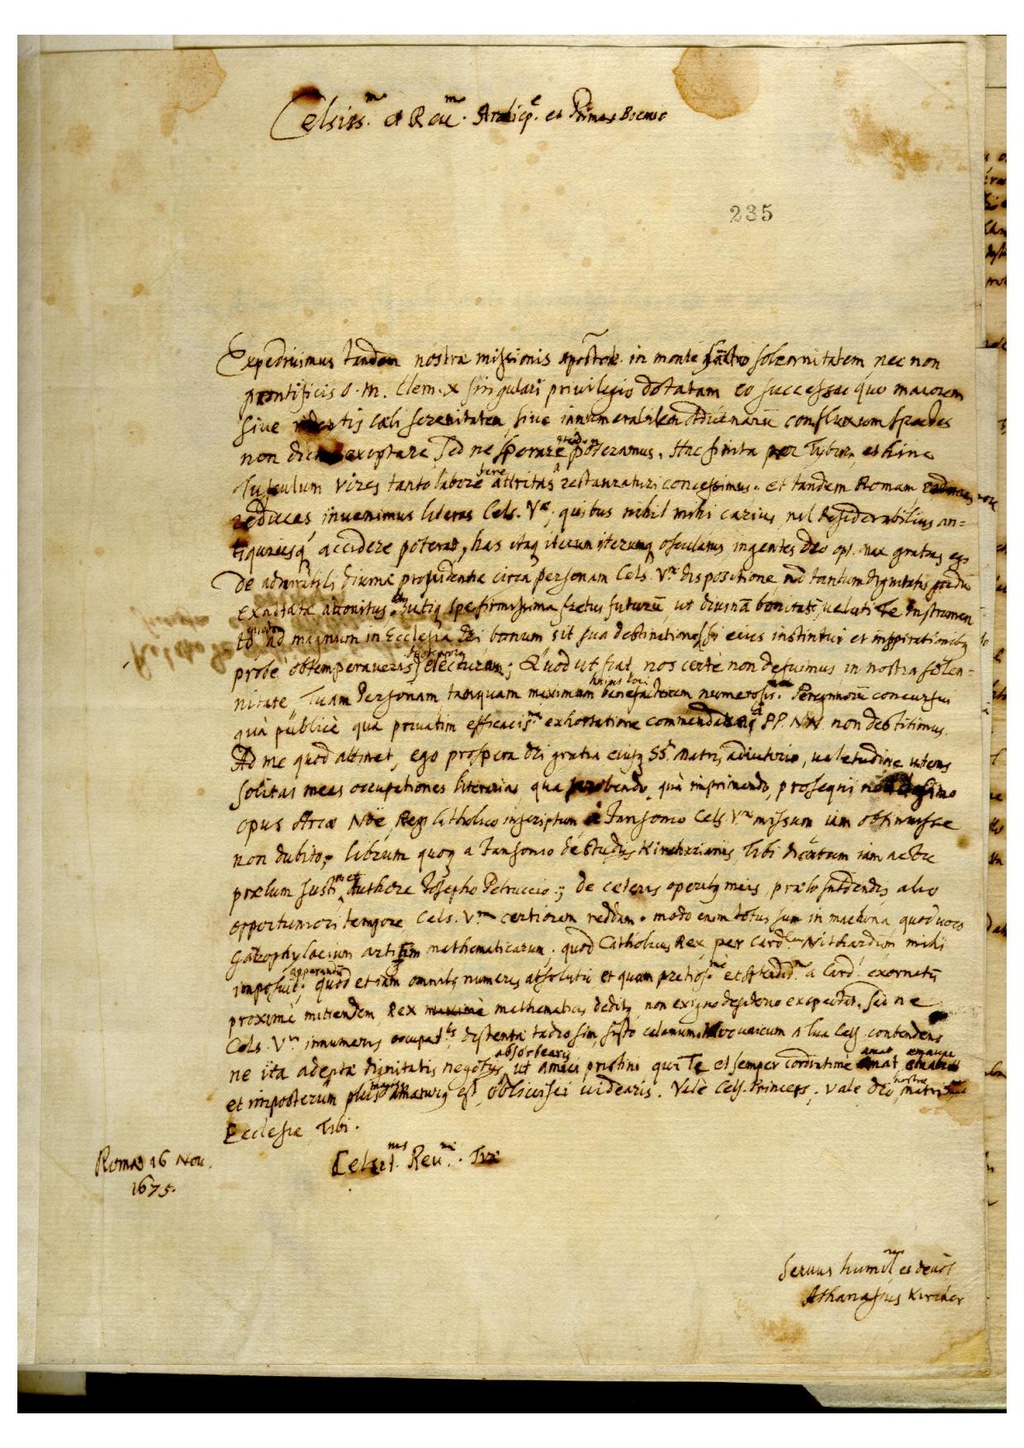 Celsiss.^m et Reu^m. Archiep^e. et Princeps
235
Expediuimus tandem nostrae missionis Apostolicae in monte solennitatem nec non
pontificis O. M. Clem. X singulari priuilegio dotatam eo successu quo maiorem
siue caeli serenitatem, siue innumerabilem Aduenarũ confluxum spectes
non dicam exoptare, sed ne sperare quidem poteramus. Hac finita per Tybur, et hinc
Tusculum vires tanto labore fere attritas restauraturi concessimus. et tandem Romam
reduces inuenimus literas Cels. V^ae, quibus nihil mihi carius, nil desiderabilius an=
accidere poterat, has itaq iterum iterumq osculatus ingentes Deo opt. max gratias ego
De admirabili diuinae prouidentiae circa personam Cels. V^ae dispositione ad tantum dignitatis gradũ
attonitus. spe firmissima fretus futurũ, ut diuina bonitas, ueluti Te Instrumen
tũ ad magnum in Ecclesia Dei bonum sit sua destinatione, si eius instinctui et inspirationibq
probe obtemperaueris, ; Quod ut fiat, nos certe non defuimus in nostra solen=
nitate Tuam Personam tanquam maximum huius loci benefactorem numerosiss. Peregrinorũ concursui
qua publicè qua priuatim efficaciss^ma exhortatione PP. NN. non destitimus.
Ad me quod attinet, ego prospera Dei gratia eiusq SS. Matris adiutorio, ualetudine utens
solitas meas occupationes literarias, qua, quà imprimendo, prosequi non desino
opus Arcae Noë, Regi Catholico inscriptum à Jansonio Cels V^rae missum iam obtinuisse
non dubito, librum quoq a Jansonio de studijs Kircherianis Tibi dicatum iam
praelum authore Josepho Petruccio; De ceteris operibq meis, praelo subdendis, alio
opportuniori tempore Cels. V^ram certiorem reddam. modo enim totus sum in machina, quod uoco
Gazophylacium mathematicarum, quod Catholicus Rex per Card^lem Nithardum mihi
imposuit, quod etiam omnibq numeris absolutũ et quam a Card. exornatũ
proximè mittendum, Rex mathematicis deditq, non exiguo desiderio exspectat. Sed ne
Cels. V^ram innumeris occupat^bus distentã taedio sim, sisto calamum, a tua Cels. contendens
ne ita adeptae dignitatis negotijs absorbearis ut amici pristini qui Te et semper cordintimè amat
et imposterum magis amaturq est, obliuisci uidearis. Vale Cels. Princeps, vale Deo,
Ecclesiae, Tibi.
Celsit.^nis Reu^mae. Tuae
Romae 16 Nou.
1675.
Seruus humil^mus et deuot
Athanasius Kircher